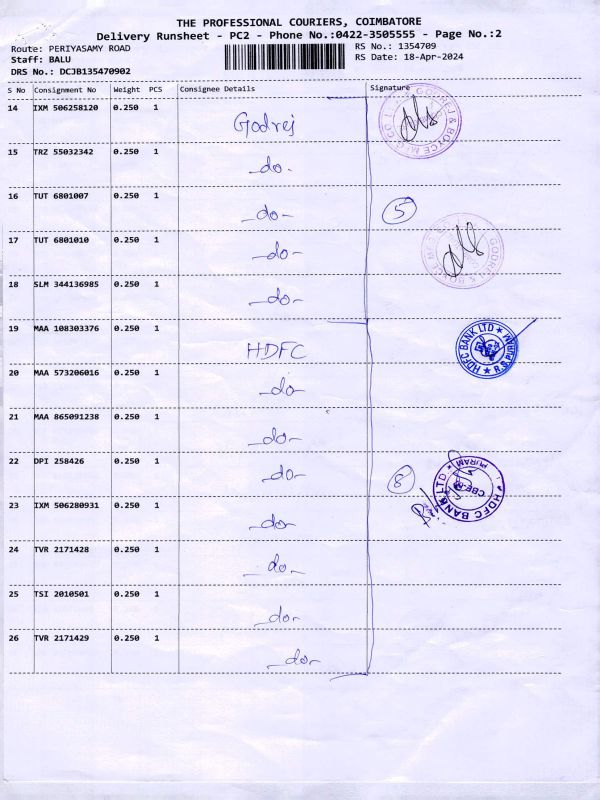 THE PROFESSIONAL COURIERS, COIMBATORE
Delivery Runsheet - PC2 - Phone No.:0422-3505555 - Page No.:2
Route: PERIYASAMY ROAD RS No.: 1354709
Staff: BALU RS Date: 18-Apr-2024
DRS No.: DCJB135470902
S No Consignment No Weight PCS Consignee Details Signature
14 IXM 506258120 0.250 1 Godrej
GODREJ & BOYCE MFG CO LTD
15 TRZ 55032342 0.250 1 -do-
16 TUT 6801007 0.250 1 -do- 5
17 TUT 6801010 0.250 1 -do-
GODREJ & BOYCE MFG CO
18 SLM 344136985 0.250 1 -do-
19 MAA 108303376 0.250 1 HDFC
HDFC BANK LTD R.S.PURAM
20 MAA 573206016 0.250 1 -do-
21 MAA 865091238 0.250 1 -do-
22 DPI 258426 0.250 1 -do- 8
HDFC BANK LTD CBE PURAM
23 IXM 506280931 0.250 1 -do-
24 TVR 2171428 0.250 1 -do-
25 TSI 2010501 0.250 1 -do-
26 TVR 2171429 0.250 1 -do-